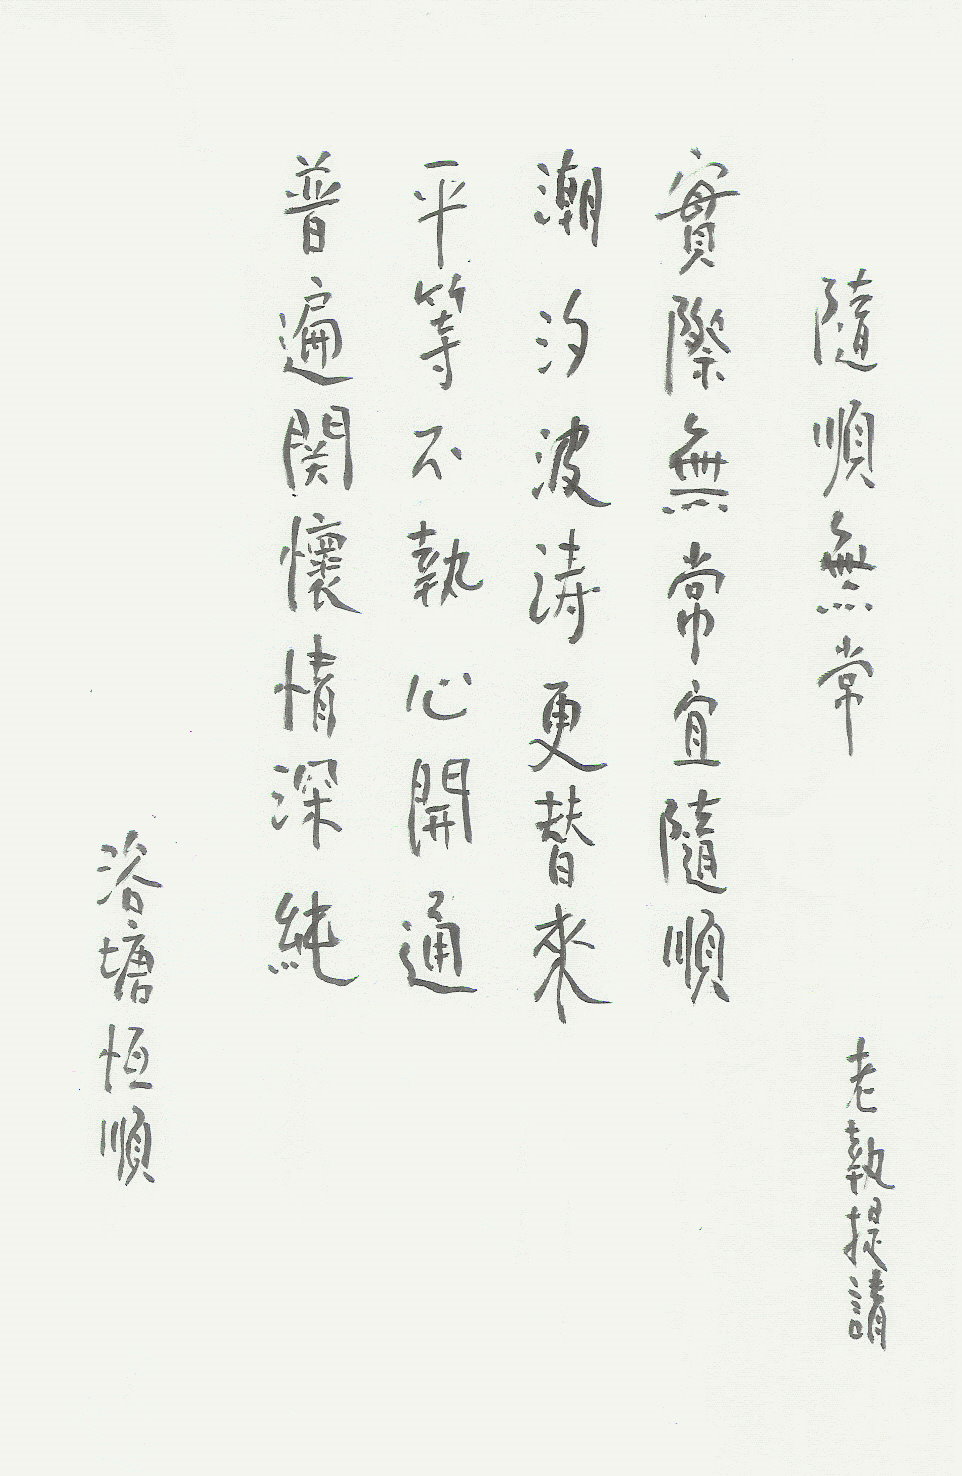 隨順無常
老執提請
實際無常宜隨順
潮汐波涛更替來
平等不執心開通
普遍関懷情深純
洛塘恒順